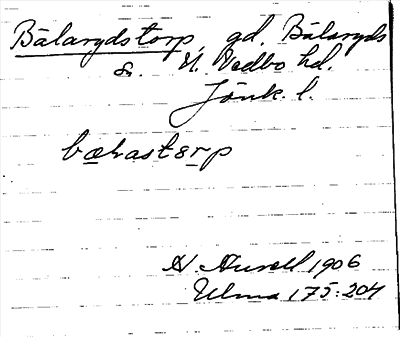 Bälarydstorp, gd. Bälaryds
sn. N. Vedbo hd.
Jönk. l.
bæhastsrp
1906
Ulma 175:204